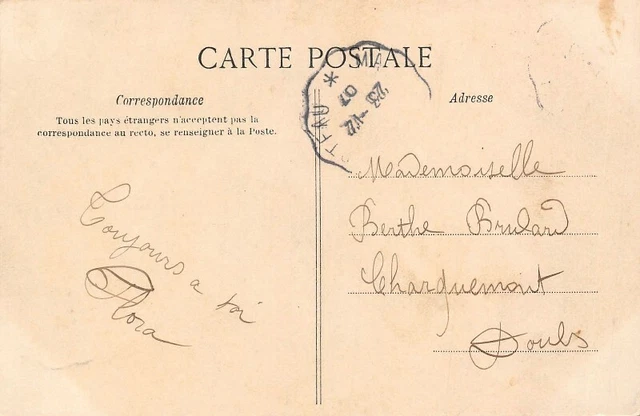 CARTE POSTALE
Correspondance
Tous les pays étrangers n'acceptent pas la
correspondance au recto, se renseigner à la Poste.
Adresse
Toujours a toi
Flora
Mademoiselle
Berthe Brulard
Charquemont
Doubs
23 -12
07